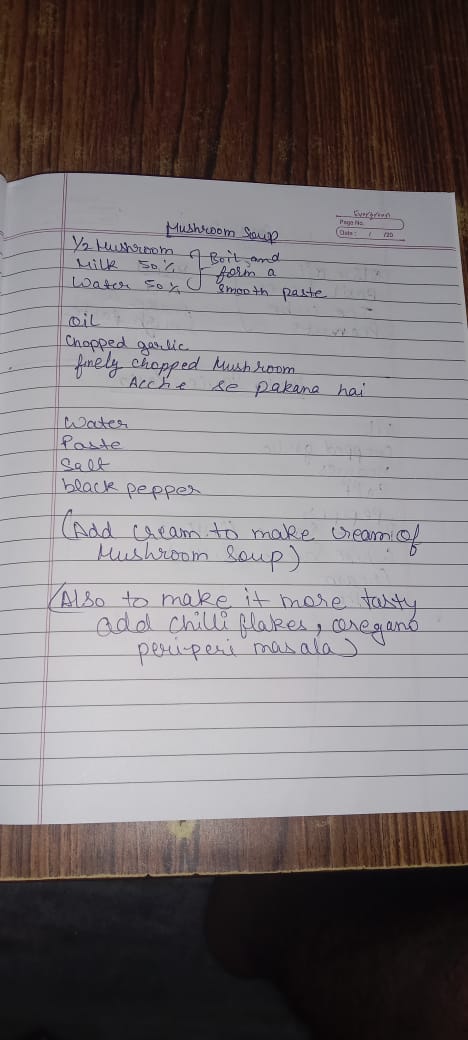 Evergreen
Page No.
Date: / /20
Mushroom Soup
1/2 Mushroom
Milk 50%
Water 50%
Boil and
form a
smooth paste
oil
Chopped garlic
finely chopped Mushroom
Acche se pakana hai
Water
Paste
Salt
black pepper
(Add cream to make cream of
Mushroom Soup)
(Also to make it more tasty
add chilli flakes, oregano
peri-peri masala)